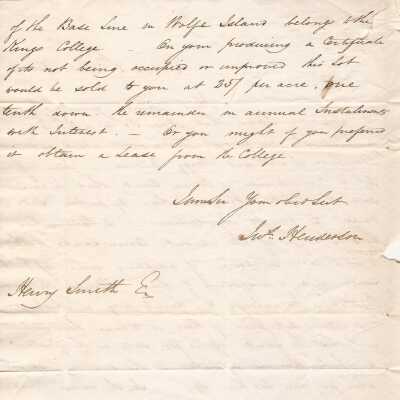 of the Base Line in Wolfe Island belong to the
Kings College – On your producing a Certificate
of its not being occupied or improved this Lot
would be sold to you at 25/ per acre, one
tenth down the remainder in annual Instalments
with Interest. – Or you might if you preferred
it obtain a Lease from the College
Your obed Sert
Henderson
Henry Smith Er